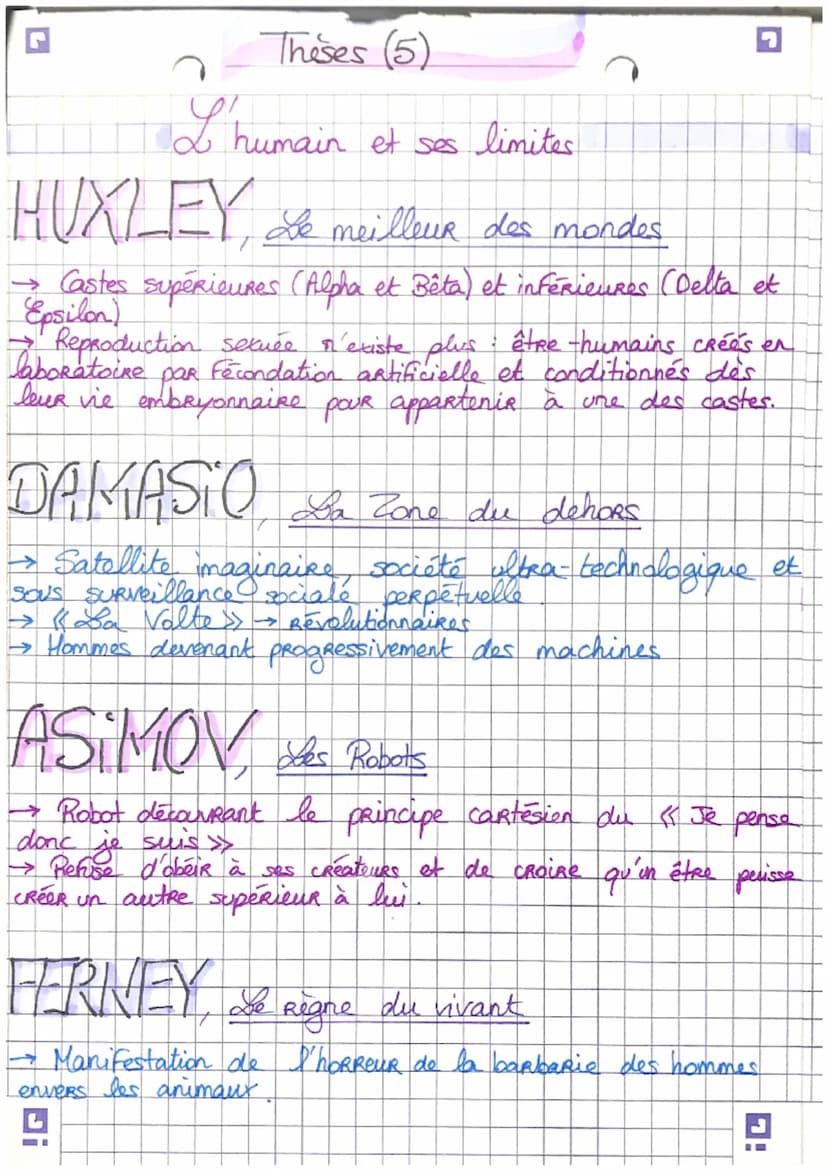 Thèses (5)
L'humain et ses limites
HUXLEY, Le meilleur des mondes
→ Castes supérieures (Alpha et Bêta) et inférieures (Delta et
Epsilon)
→ Reproduction sexuée n'existe plus : être-humains créés en
laboratoire par fécondation artificielle et conditionnés dès
leur vie embryonnaire pour appartenir à une des castes.
DAMASiO, La Zone du dehors
→ Satellite imaginaire, société ultra-technologique et
sous surveillance sociale perpétuelle.
→ « La Volte » → Révolutionnaires
→ Hommes devenant progressivement des machines
ASiMOV, Les Robots
→ Robot découvrant le principe cartésien du « Je pense
donc je suis »
→ Refuse d'obéir à ses créateurs et de croire qu'un être puisse
créer un autre supérieur à lui.
FERNEY, Le règne du vivant
→ Manifestation de l'horreur de la barbarie des hommes
envers les animaux.